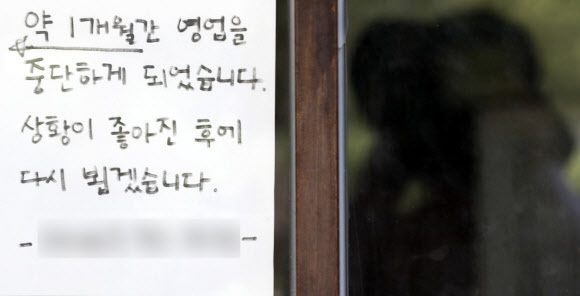 약 1개월간 영업을
중단하게 되었습니다.
상황이 좋아진 후에
다시 뵙겠습니다.